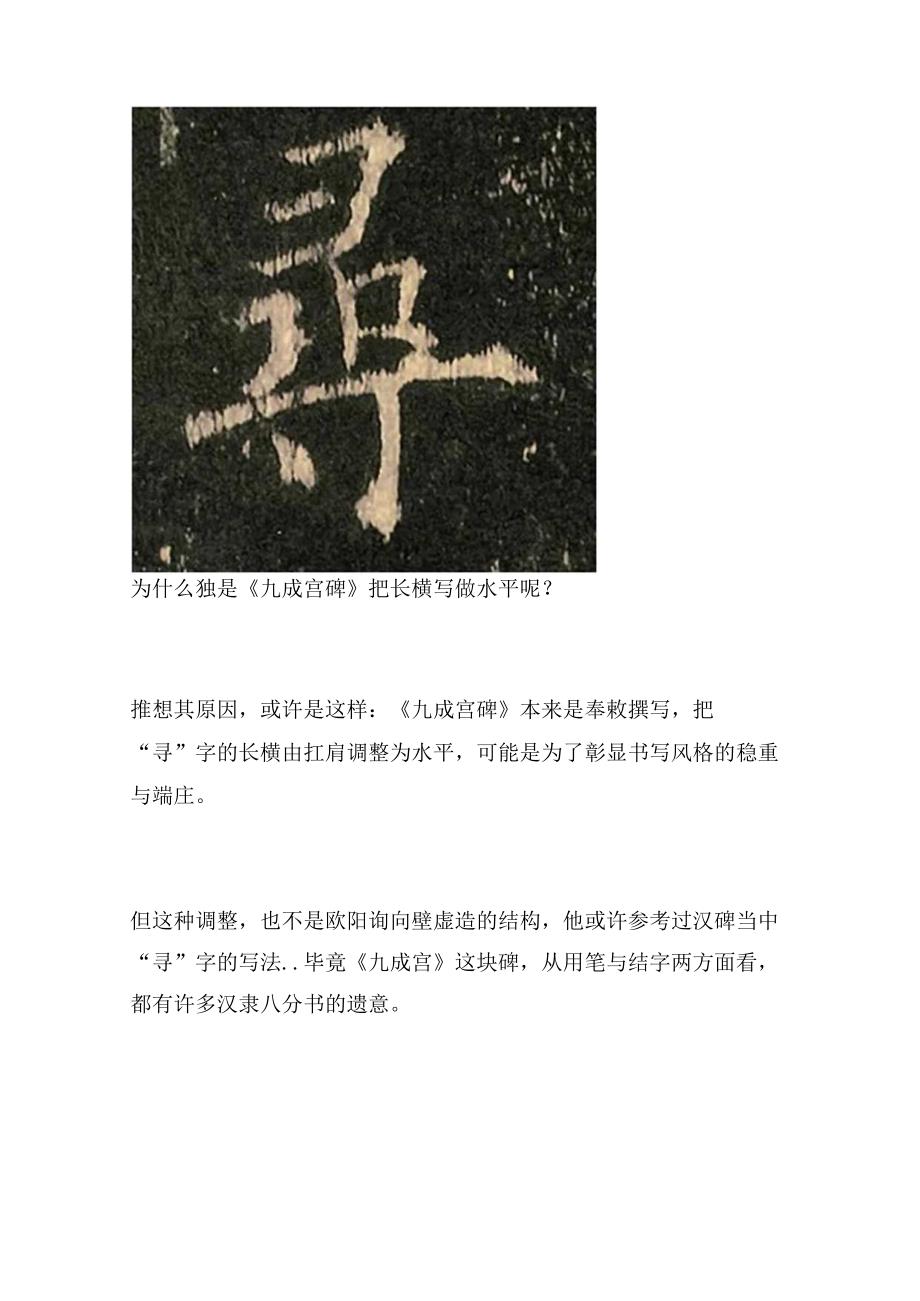 尋
为什么独是《九成宫碑》把长横写做水平呢？
推想其原因，或许是这样：《九成宫碑》本来是奉敕撰写，把
“寻”字的长横由扛肩调整为水平，可能是为了彰显书写风格的稳重
与端庄。
但这种调整，也不是欧阳询向壁虚造的结构，他或许参考过汉碑当中
“寻”字的写法..毕竟《九成宫》这块碑，从用笔与结字两方面看，
都有许多汉隶八分书的遗意。